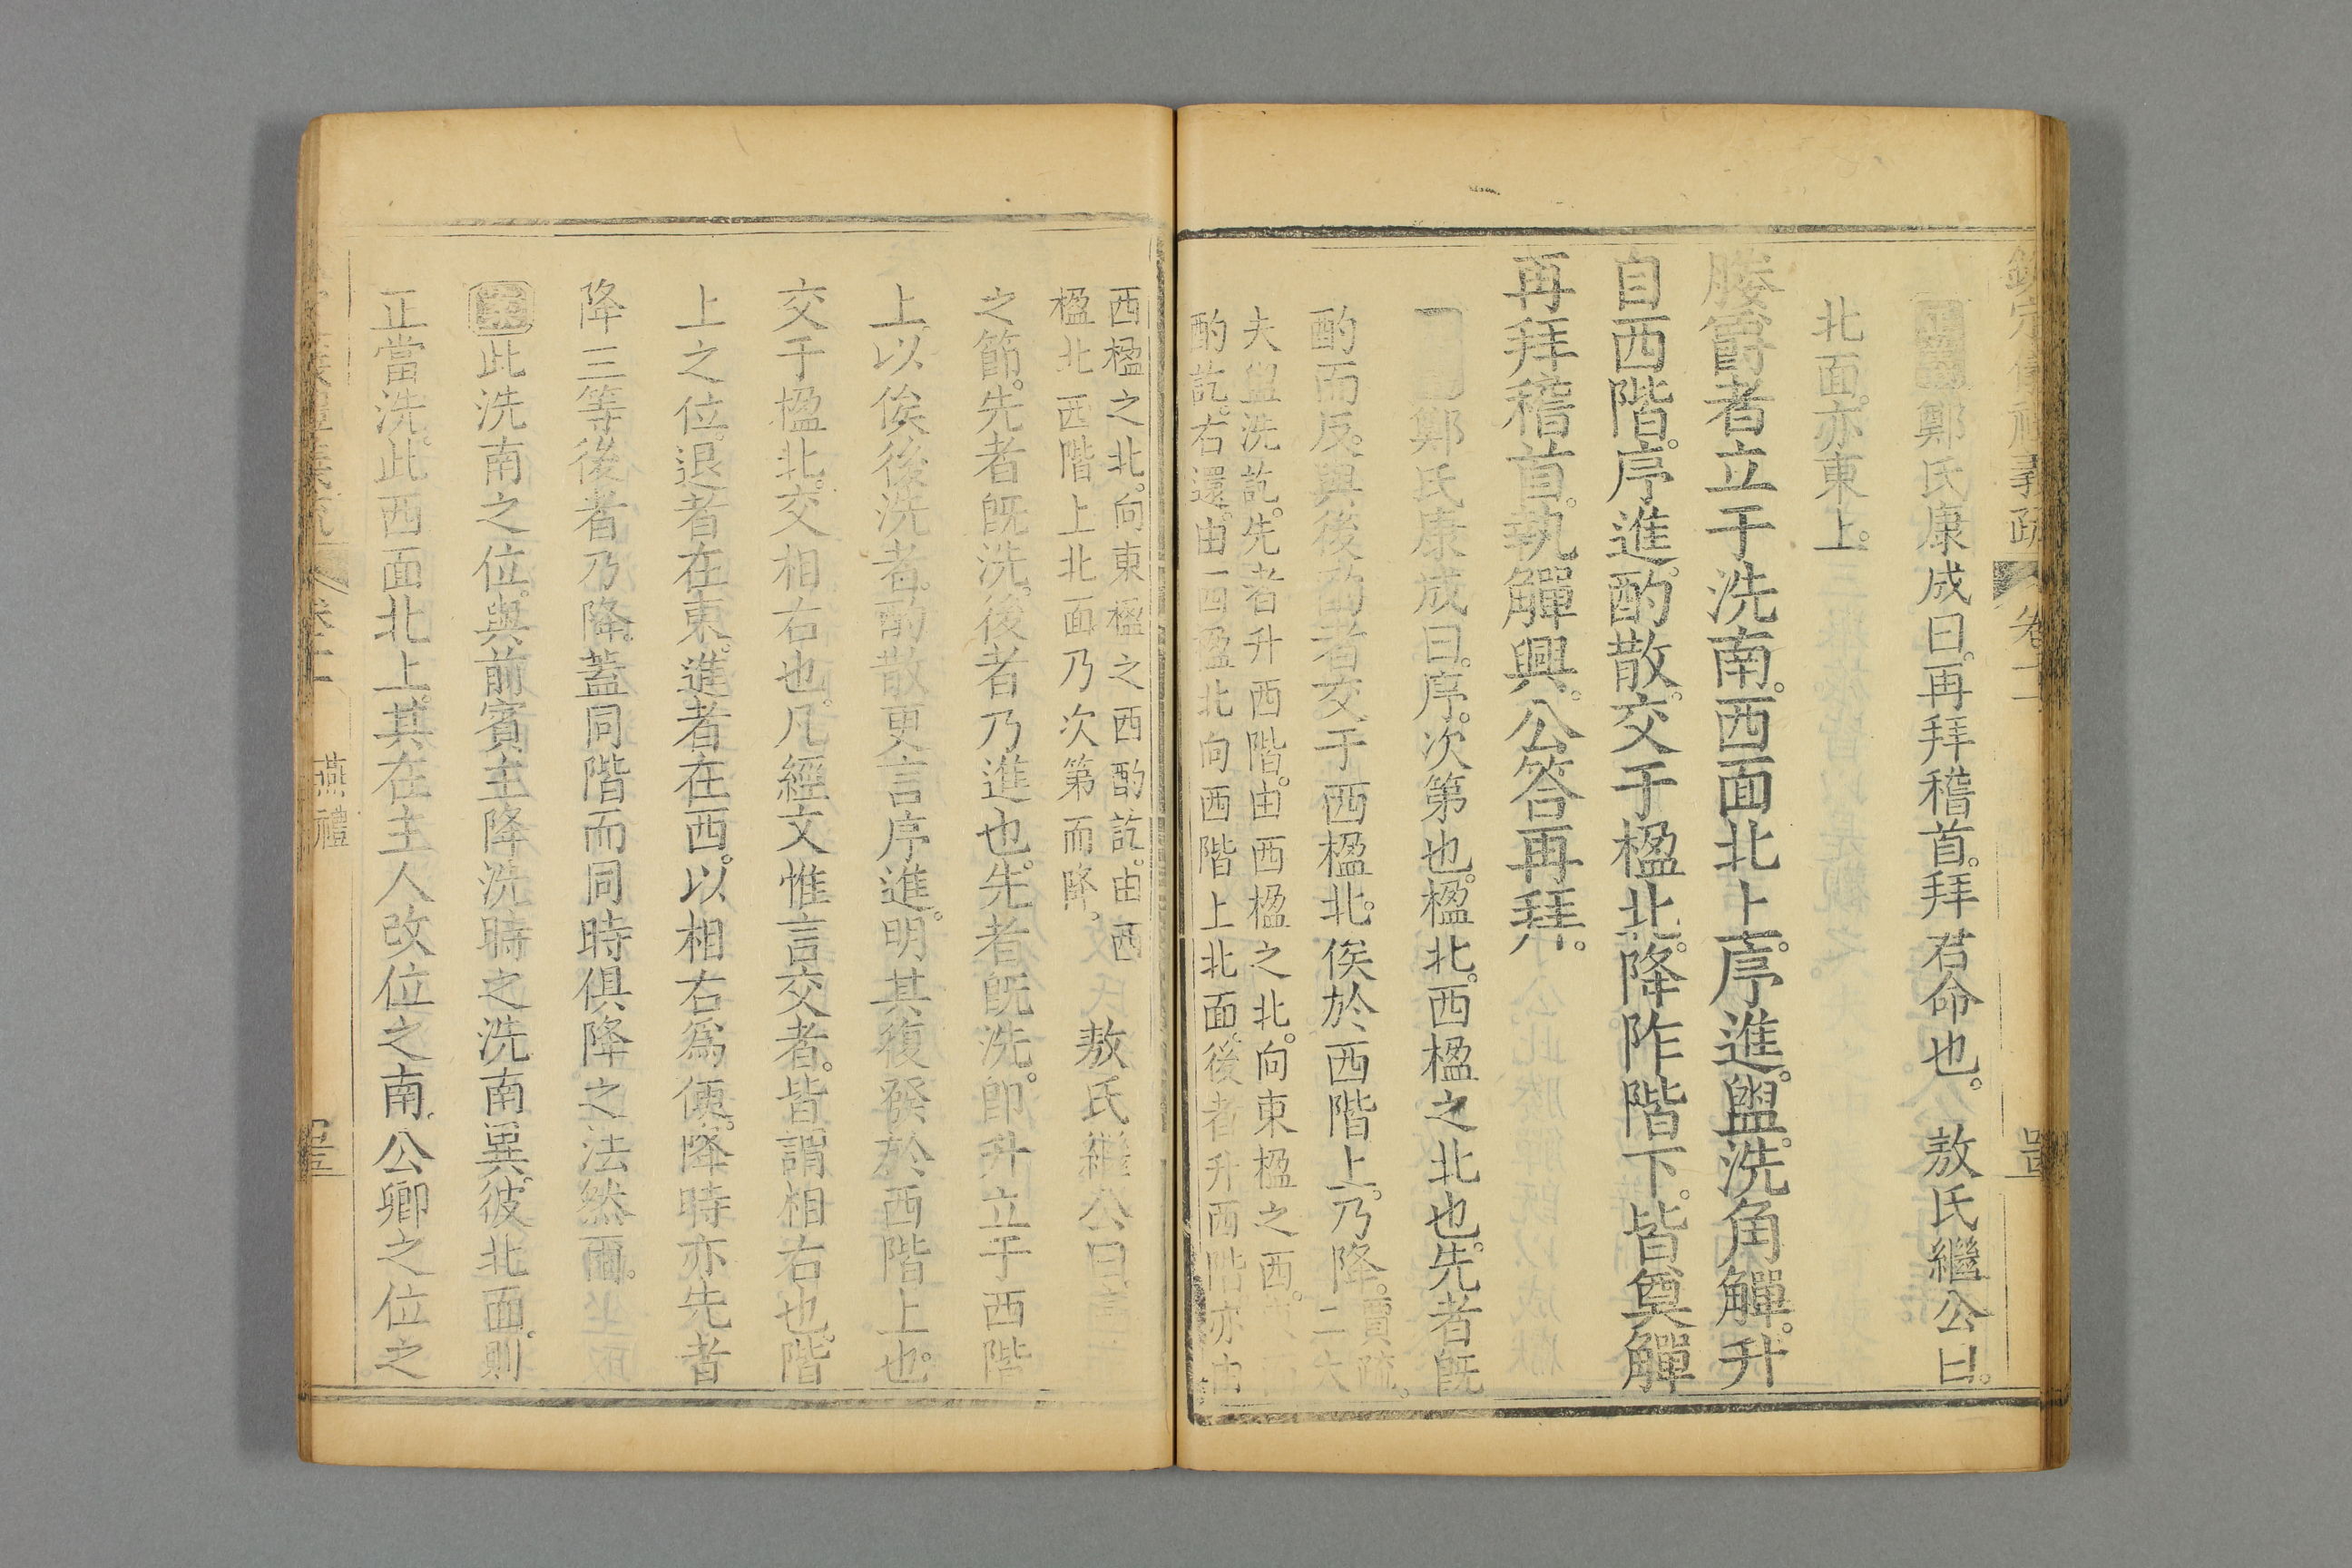 義疏 卷十
鄭氏康成曰。再拜稽首。拜君命也。 敖氏繼公曰。
北面。亦東上。
媵爵者立于洗南。西面北上。序進。盥洗角觶。升
自西階。序進。酌散。交于楹北。降。阼階下。皆奠觶。
再拜稽首。執觶興。公答再拜。
鄭氏康成曰。序。次第也。楹北。西楹之北也。先者既
酌而反。與後酌者交于西楹北。俟於西階上。乃降。賈疏。二大
夫盥洗訖。先者升西階。由西楹之北。向東楹之西。
酌訖。右還。由西楹北向西階上北面。後者升西階亦由
西楹之北。向東楹之西酌訖。由西
楹北西階上北面乃次第而降。 敖氏繼公曰
之節。先者既洗。後者乃進也。先者既洗。即升立于西階
上。以俟後洗者。酌散更言序進。明其復發於西階上也。
交于楹北。交相右也。凡經文惟言交者。皆謂相右也。階
上之位。退者在東。進者在西。以相右爲便。降時亦先者
降三等。後者乃降。蓋同階而同時俱降之法然爾。
此洗南之位。與前賓主降洗時之洗南異。彼北面。則
正當洗。此西面北上。其在主人改位之南。公卿之位之
卷十二 燕禮